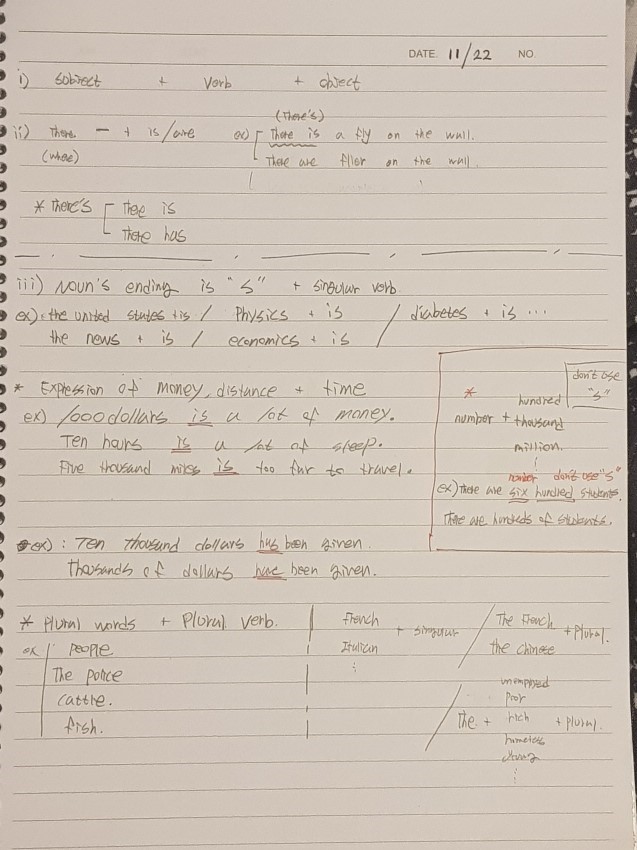 DATE. 11/22 NO.
i) subject + verb + object
(There's)
ii) There. — + is/are ex) There is a fly on the wall.
(where) There are flier on the wall.
* There's There is
There has
iii) Noun's ending is "S" + singular verb
ex): the united states + is / Physics + is / diabetes + is ...
the news + is / economics + is
* Expression of money, distance + time
ex) 1000 dollars is a lot of money.
Ten hours is a lot of sleep.
Five thousand miles is too far to travel.
don't use
"S"
* hundred
number + thousand
million.
number don't use "S"
ex) there are six hundred students.
There are hundreds of students.
ex): Ten thousand dollars has been given.
Thousands of dollars have been given.
* plural words + Plural verb.
ex people
The police
cattle.
fish.
French
Italian + singular
/ The French
the chinese + Plural.
unemployed
poor
/ The + rich + plural.
homeless
young